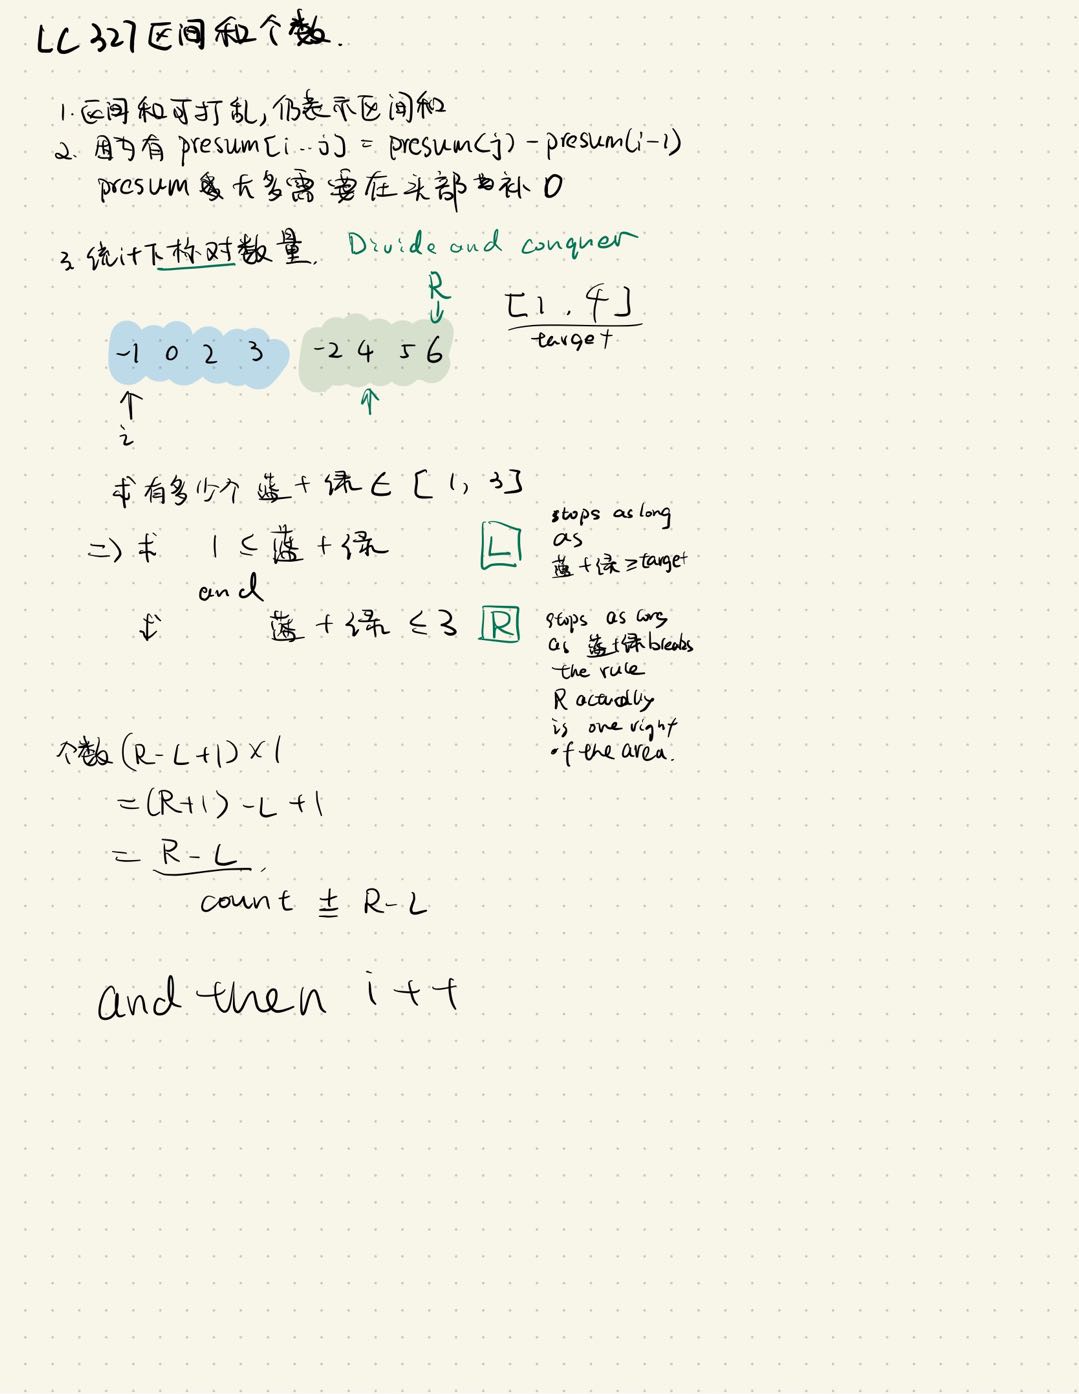 LC 327 区间和个数.
1. 区间和可打乱,仍表示区间和
2. 因为有 presum[i...j] = presum(j) - presum(i-1)
presum 大多需要在头部补 0
3. 统计下标对数量. Divide and conquer
R
[1, 4]
target
-1 0 2 3 -2 4 5 6
i
求有多少个 蓝 + 绿 ∈ [1, 3]
=> 求 1 ≤ 蓝 + 绿 L
stops as long
as
蓝 + 绿 ≥ target
and
求 蓝 + 绿 ≤ 3 R
stops as long
as 蓝+绿 breaks
the rule
R actually
is one right
of the area.
个数 (R-L+1) × 1
= (R+1) - L + 1
= R - L.
count ± R-L
and then i++